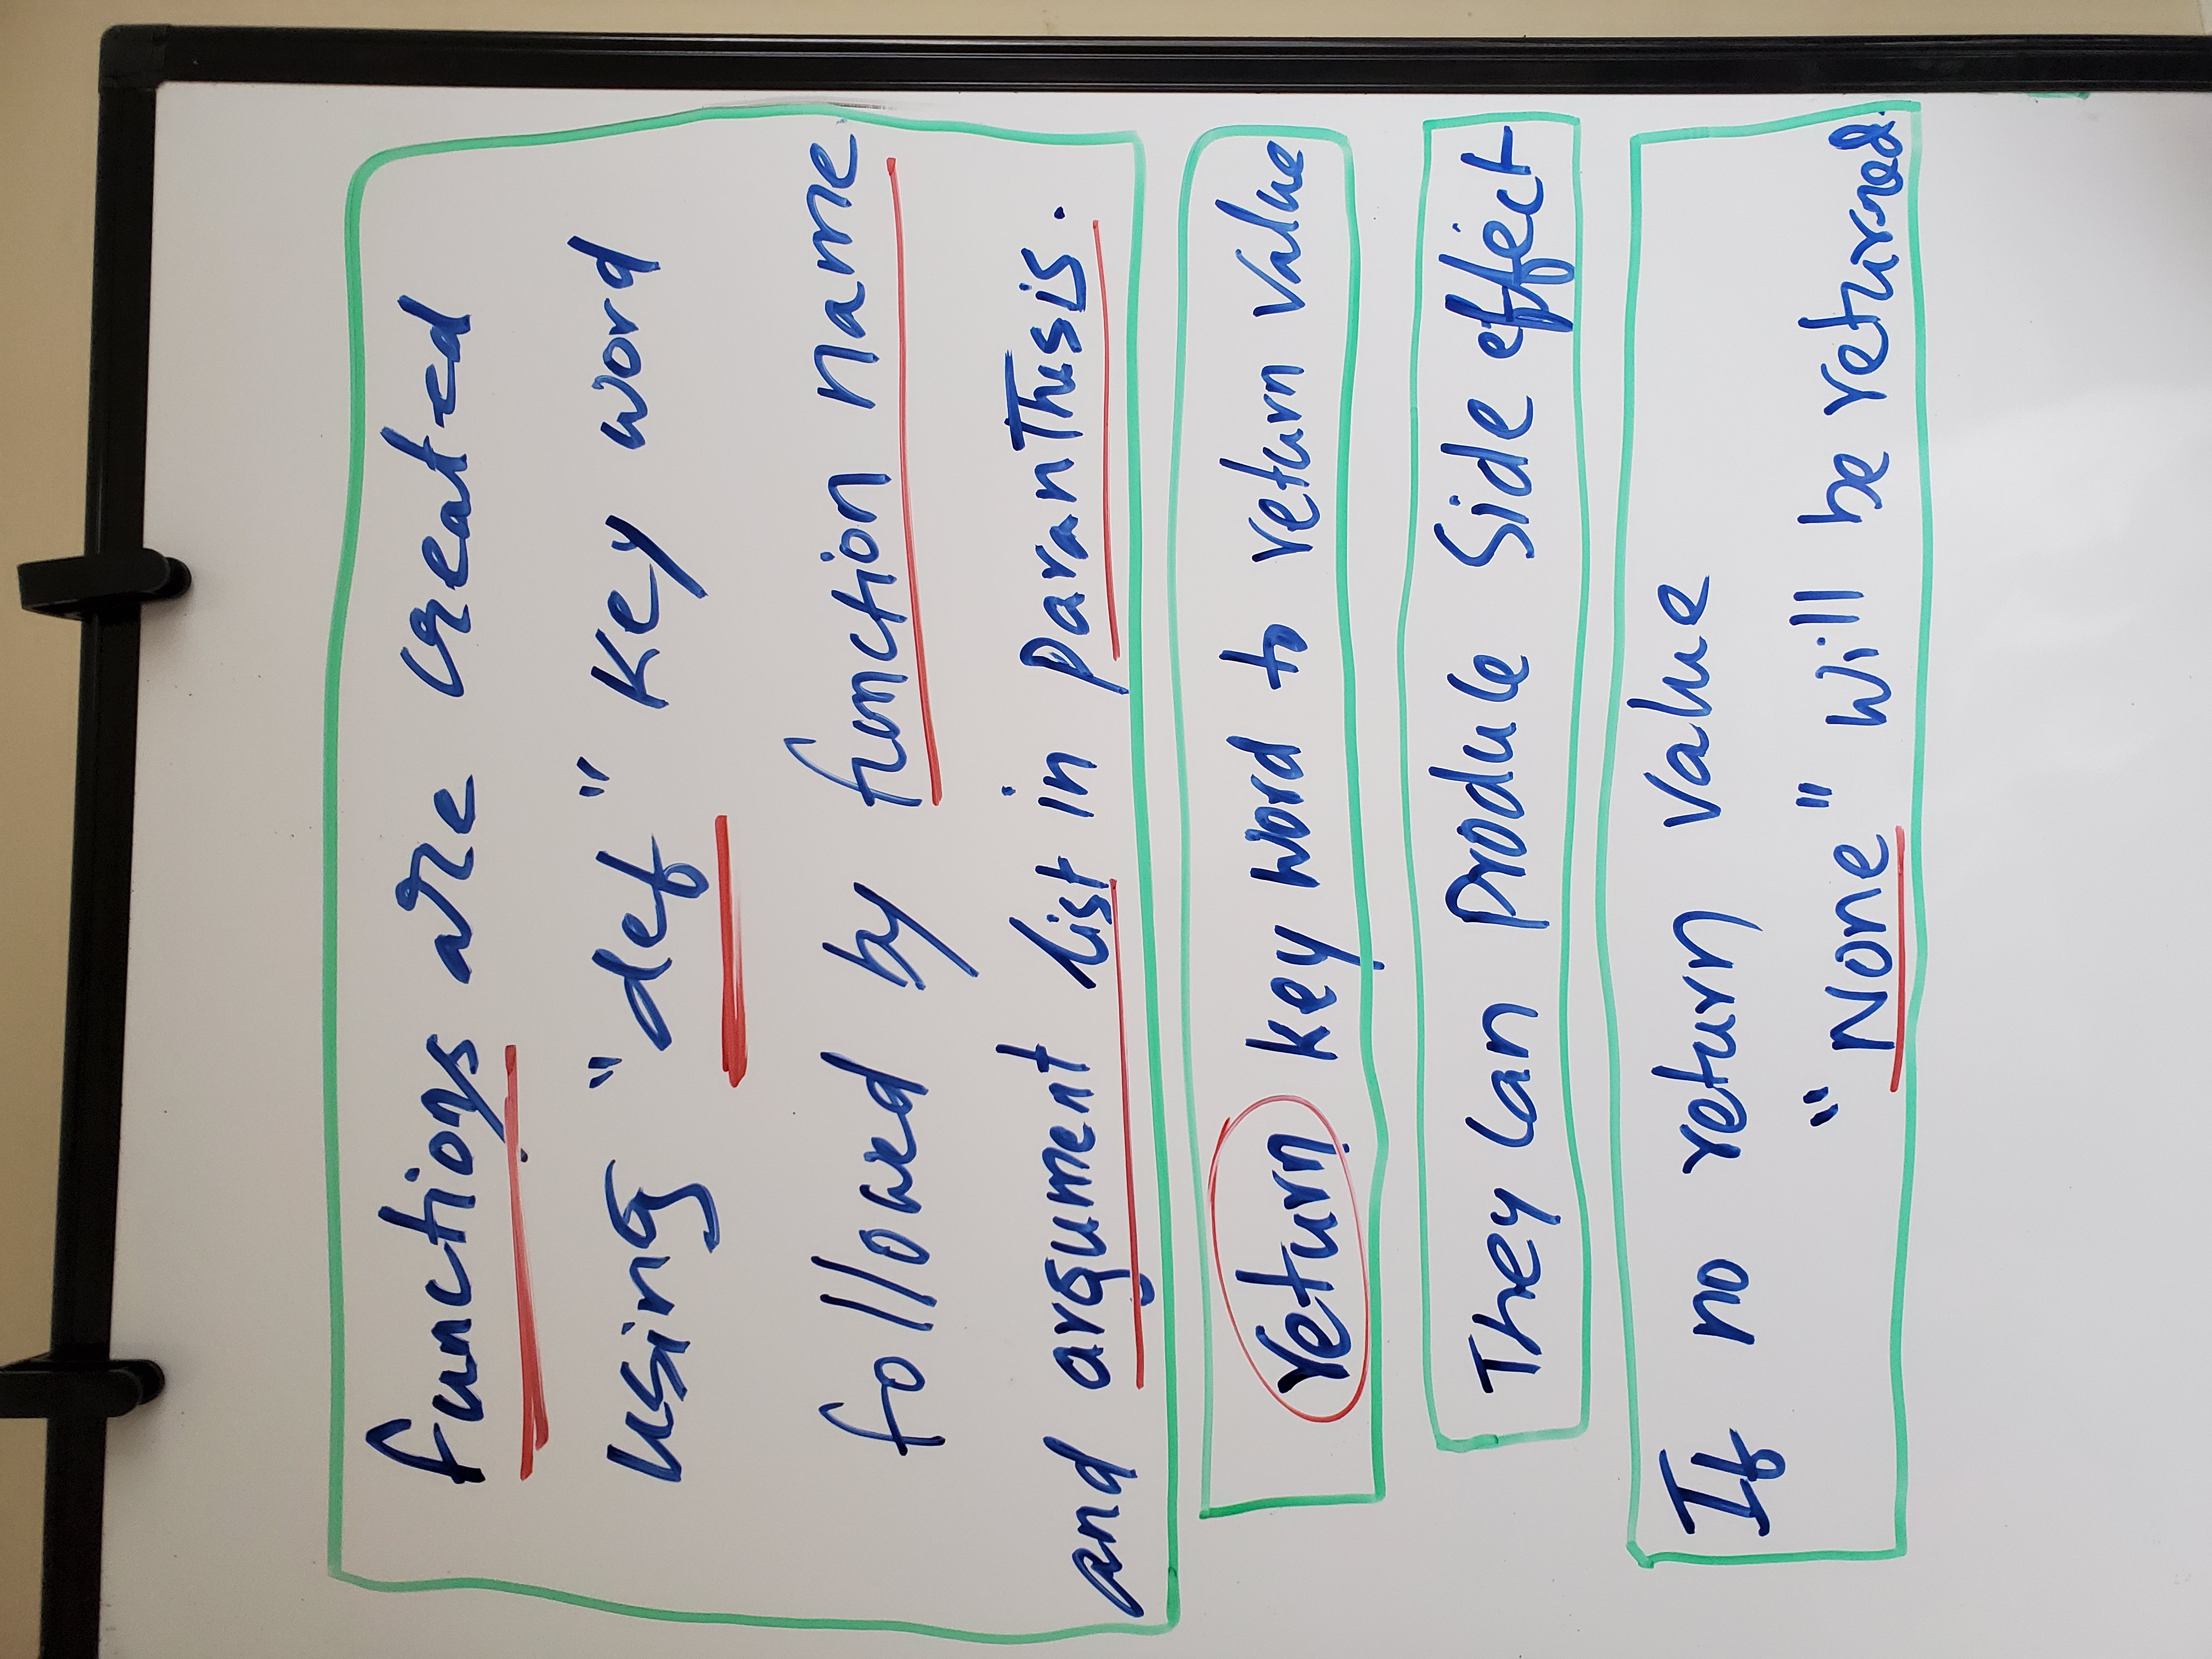 functions are created
using "def" key word
followed by function name
and argument list in paranthesis.
return key word to return value
They can produce side effect
If no return value
"None" will be returned.